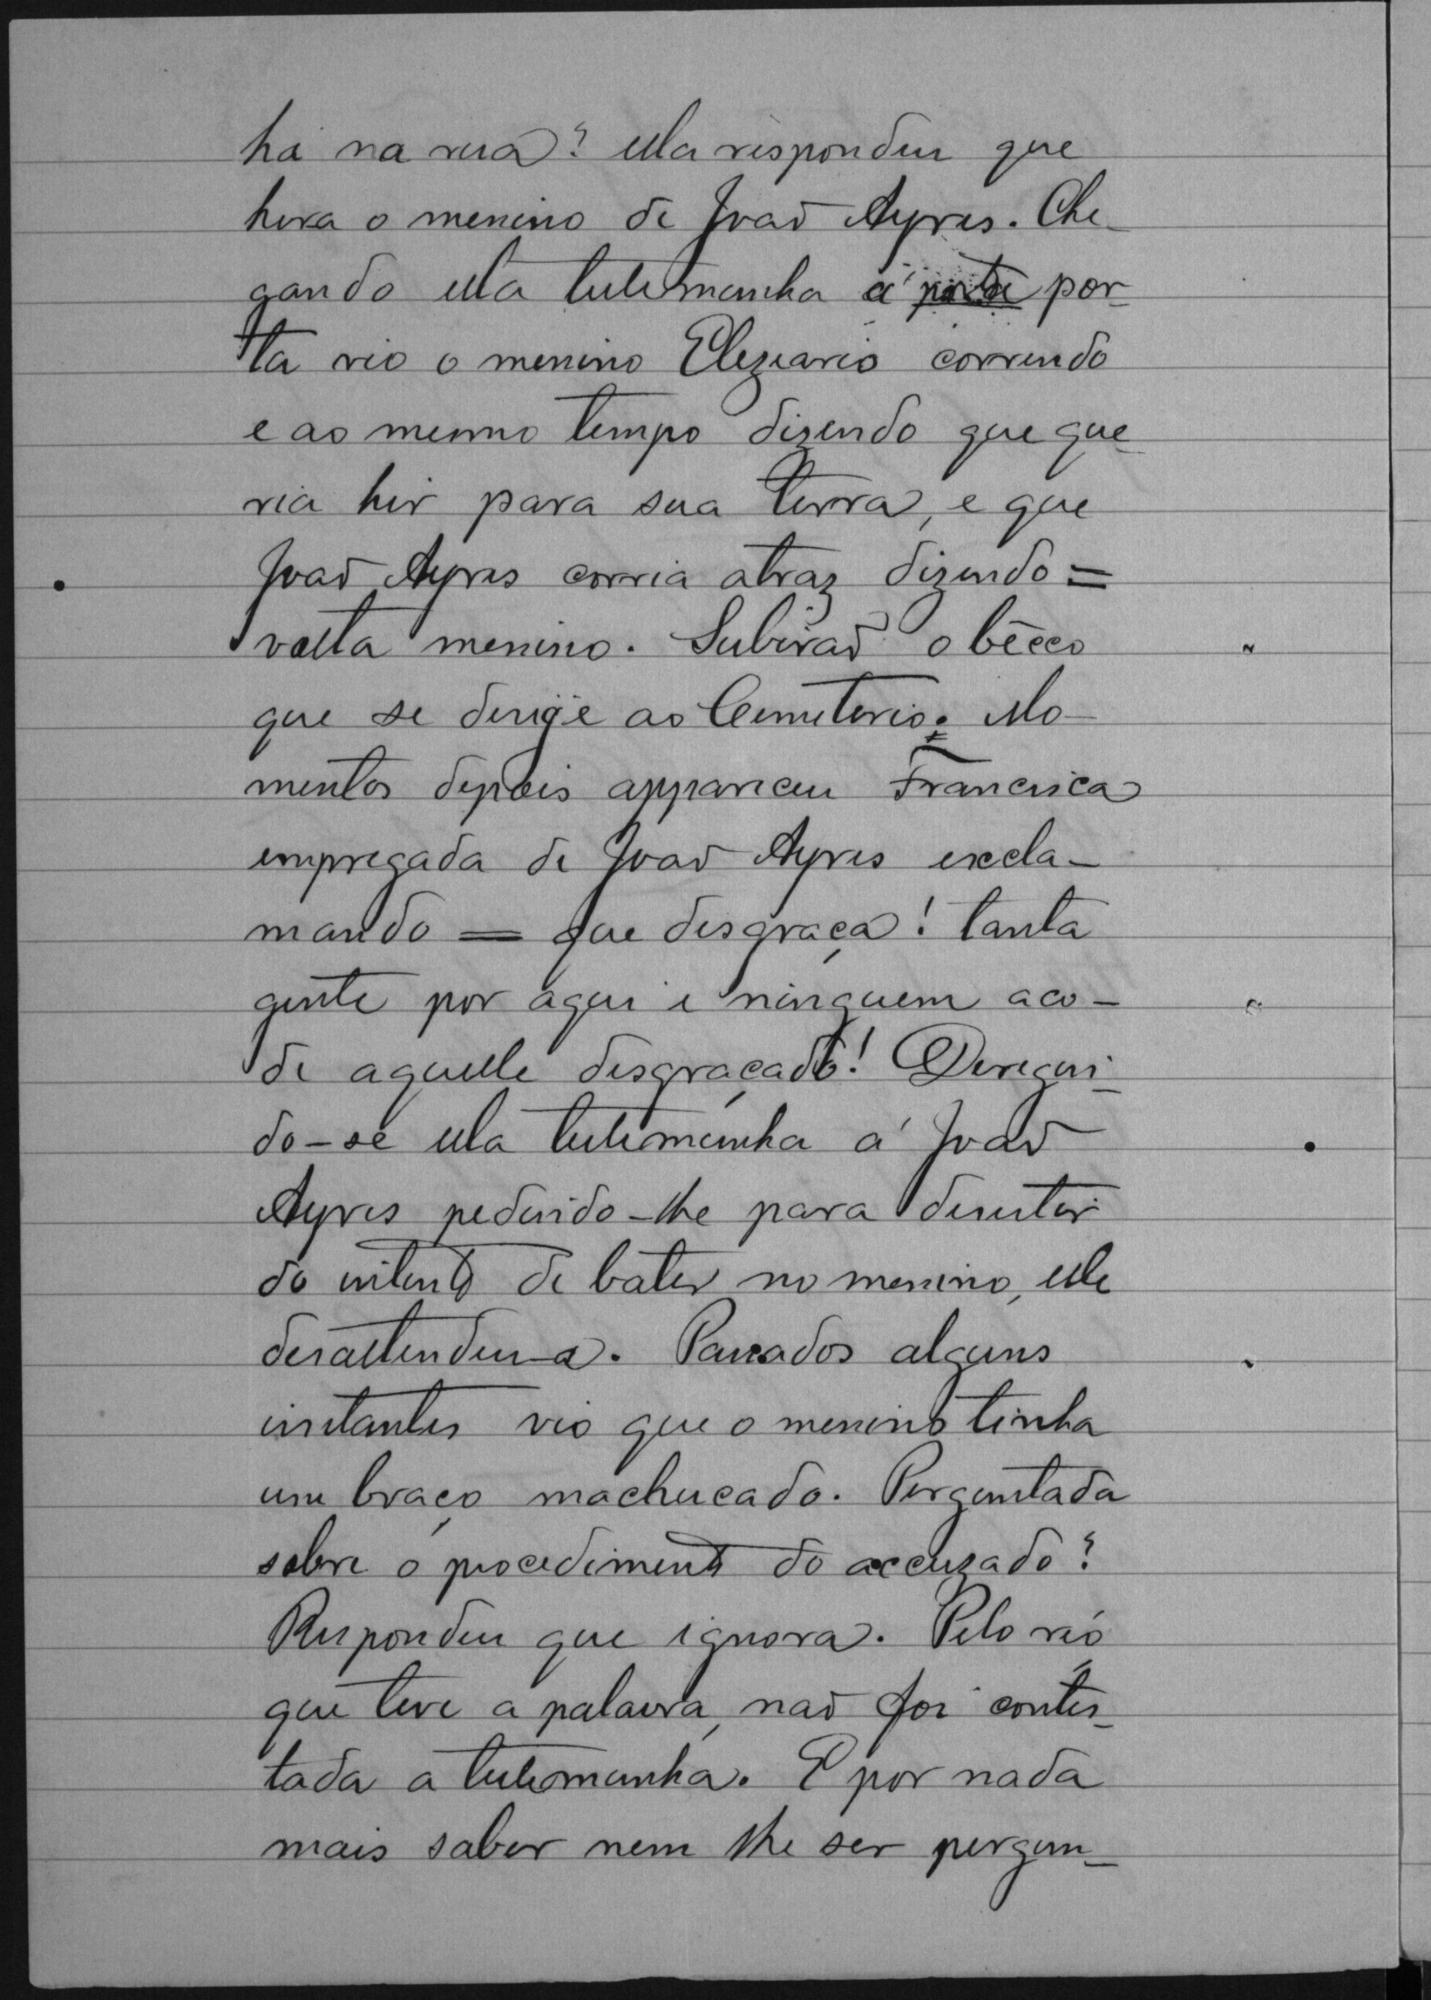 há na rua? ella respondeu que
hera o menino de João Ayres. Che-
gando ella testemunha á porta por-
ta vio o menino Eleziario correndo
e ao mesmo tempo dizendo que que-
ria hir para sua terra, e que
João Ayres corria atraz dizendo =
volta menino. Subirão o bêcco
que se derige ao Cemeterio. Mo-
mentos depois appareceu Francisca
empregada de João Ayres excla-
mando = que desgraça! tanta
gente por aqui e ninguem aco-
de aquelle desgraçado! Deregin-
do-se ella testemunha á João
Ayres pedindo-lhe para desistir
do intento de bater no menino, elle
desattendeu-a. Passados alguns
instantes vio que o menino tinha
um braço machucado. Perguntada
sobre o procedimento do accuzado?
Respondeu que ignora. Pelo réo
que teve a palavra, não foi contes-
tada a testemunha. E por nada
mais saber nem lhe ser pergun-